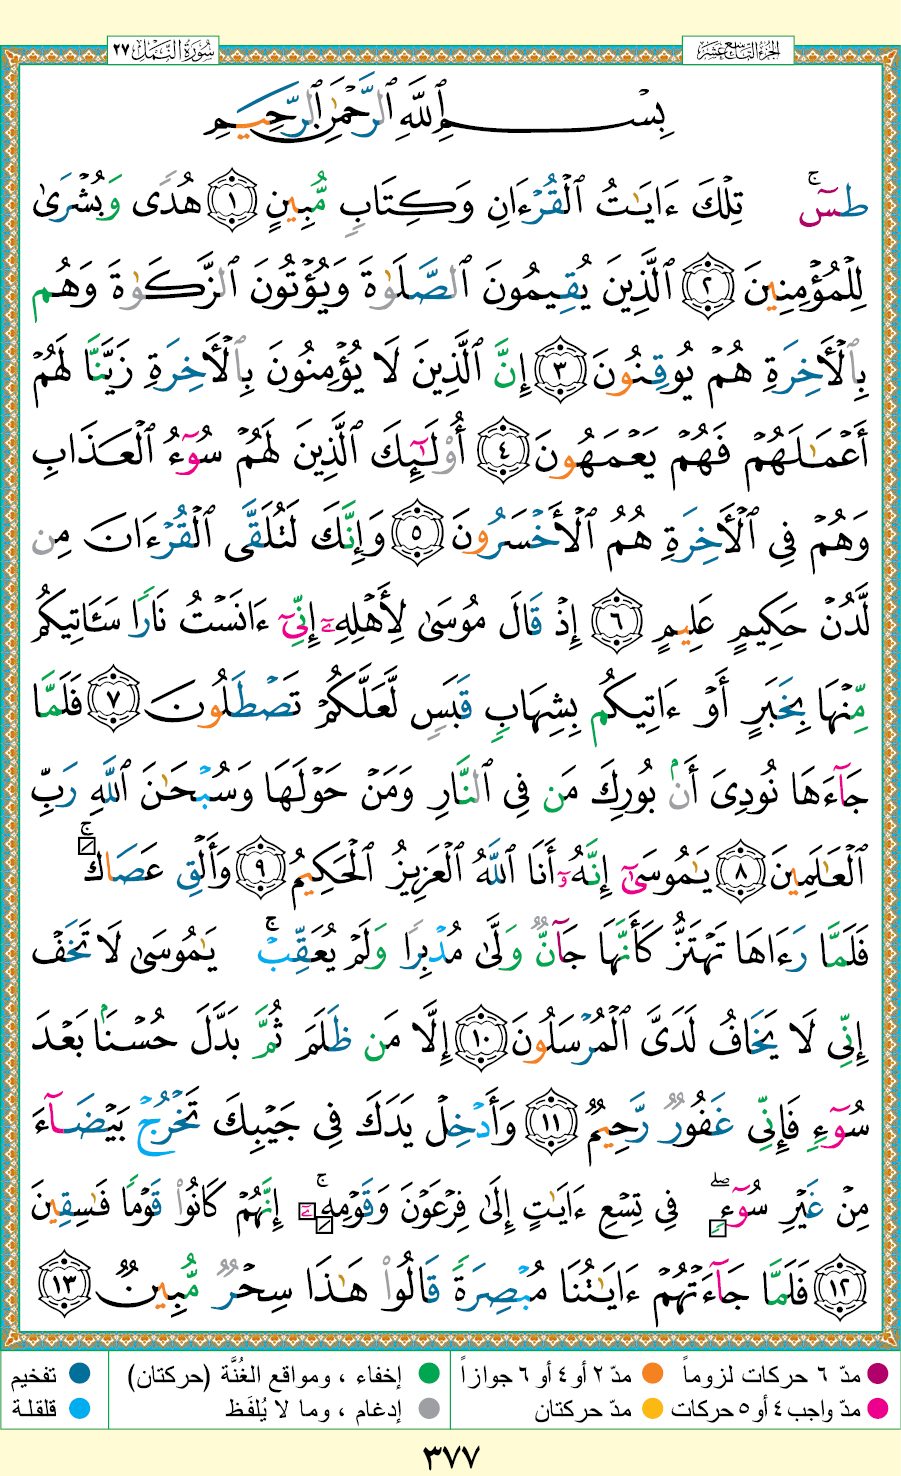 الجزء التاسع عشر
سُورَةُ النَّمْلِ ٢٧
بِسْمِ ٱللَّهِ ٱلرَّحْمَٰنِ ٱلرَّحِيمِ
طسٓۚ تِلْكَ ءَايَٰتُ ٱلْقُرْءَانِ وَكِتَابٍ مُّبِينٍ ١ هُدًى وَبُشْرَىٰ
لِلْمُؤْمِنِينَ ٢ ٱلَّذِينَ يُقِيمُونَ ٱلصَّلَوٰةَ وَيُؤْتُونَ ٱلزَّكَوٰةَ وَهُم
بِٱلْأَخِرَةِ هُمْ يُوقِنُونَ ٣ إِنَّ ٱلَّذِينَ لَا يُؤْمِنُونَ بِٱلْأَخِرَةِ زَيَّنَّا لَهُمْ
أَعْمَٰلَهُمْ فَهُمْ يَعْمَهُونَ ٤ أُو۟لَٰٓئِكَ ٱلَّذِينَ لَهُمْ سُوٓءُ ٱلْعَذَابِ
وَهُمْ فِى ٱلْأَخِرَةِ هُمُ ٱلْأَخْسَرُونَ ٥ وَإِنَّكَ لَتُلَقَّى ٱلْقُرْءَانَ مِن
لَّدُنْ حَكِيمٍ عَلِيمٍ ٦ إِذْ قَالَ مُوسَىٰ لِأَهْلِهِۦٓ إِنِّىٓ ءَانَسْتُ نَارًا سَـَٔاتِيكُم
مِّنْهَا بِخَبَرٍ أَوْ ءَاتِيكُم بِشِهَابٍ قَبَسٍ لَّعَلَّكُمْ تَصْطَلُونَ ٧ فَلَمَّا
جَآءَهَا نُودِىَ أَنۢ بُورِكَ مَن فِى ٱلنَّارِ وَمَنْ حَوْلَهَا وَسُبْحَٰنَ ٱللَّهِ رَبِّ
ٱلْعَٰلَمِينَ ٨ يَٰمُوسَىٰٓ إِنَّهُۥٓ أَنَا ٱللَّهُ ٱلْعَزِيزُ ٱلْحَكِيمُ ٩ وَأَلْقِ عَصَاكَۚ
فَلَمَّا رَءَاهَا تَهْتَزُّ كَأَنَّهَا جَآنٌّ وَلَّىٰ مُدْبِرًا وَلَمْ يُعَقِّبْۚ يَٰمُوسَىٰ لَا تَخَفْ
إِنِّى لَا يَخَافُ لَدَىَّ ٱلْمُرْسَلُونَ ١٠ إِلَّا مَن ظَلَمَ ثُمَّ بَدَّلَ حُسْنًۢا بَعْدَ
سُوٓءٍ فَإِنِّى غَفُورٌ رَّحِيمٌ ١١ وَأَدْخِلْ يَدَكَ فِى جَيْبِكَ تَخْرُجْ بَيْضَآءَ
مِنْ غَيْرِ سُوٓءٍۖ فِى تِسْعِ ءَايَٰتٍ إِلَىٰ فِرْعَوْنَ وَقَوْمِهِۦٓۚ إِنَّهُمْ كَانُوا۟ قَوْمًا فَٰسِقِينَ
١٢ فَلَمَّا جَآءَتْهُمْ ءَايَٰتُنَا مُبْصِرَةً قَالُوا۟ هَٰذَا سِحْرٌ مُّبِينٌ ١٣
مدّ ٦ حركات لزوماً مدّ ٢ أو ٤ أو ٦ جوازاً إخفاء ، ومواقع الغُنَّة (حركتان) تفخيم
مدّ واجب ٤ أو ٥ حركات مدّ حركتان إدغام ، وما لا يُلفَظ قلقلة
٣٧٧